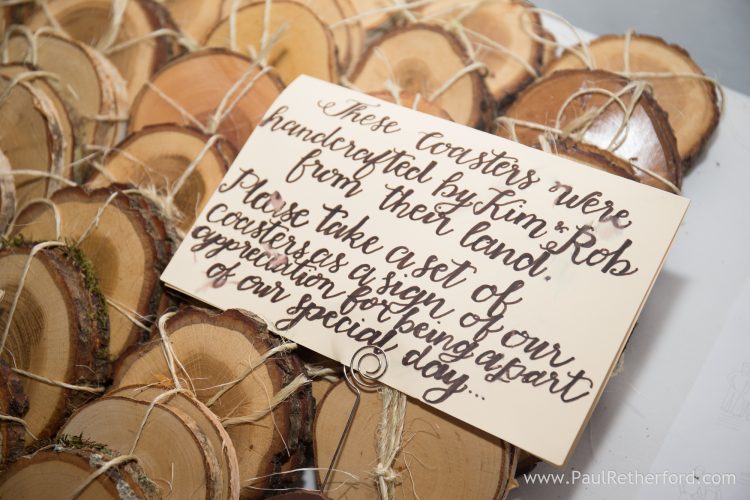 These coasters were
handcrafted by Kim & Rob
from their land.
Please take a set of
coasters as a sign of our
appreciation for being a part
of our special day...
www.PaulRetherford.com